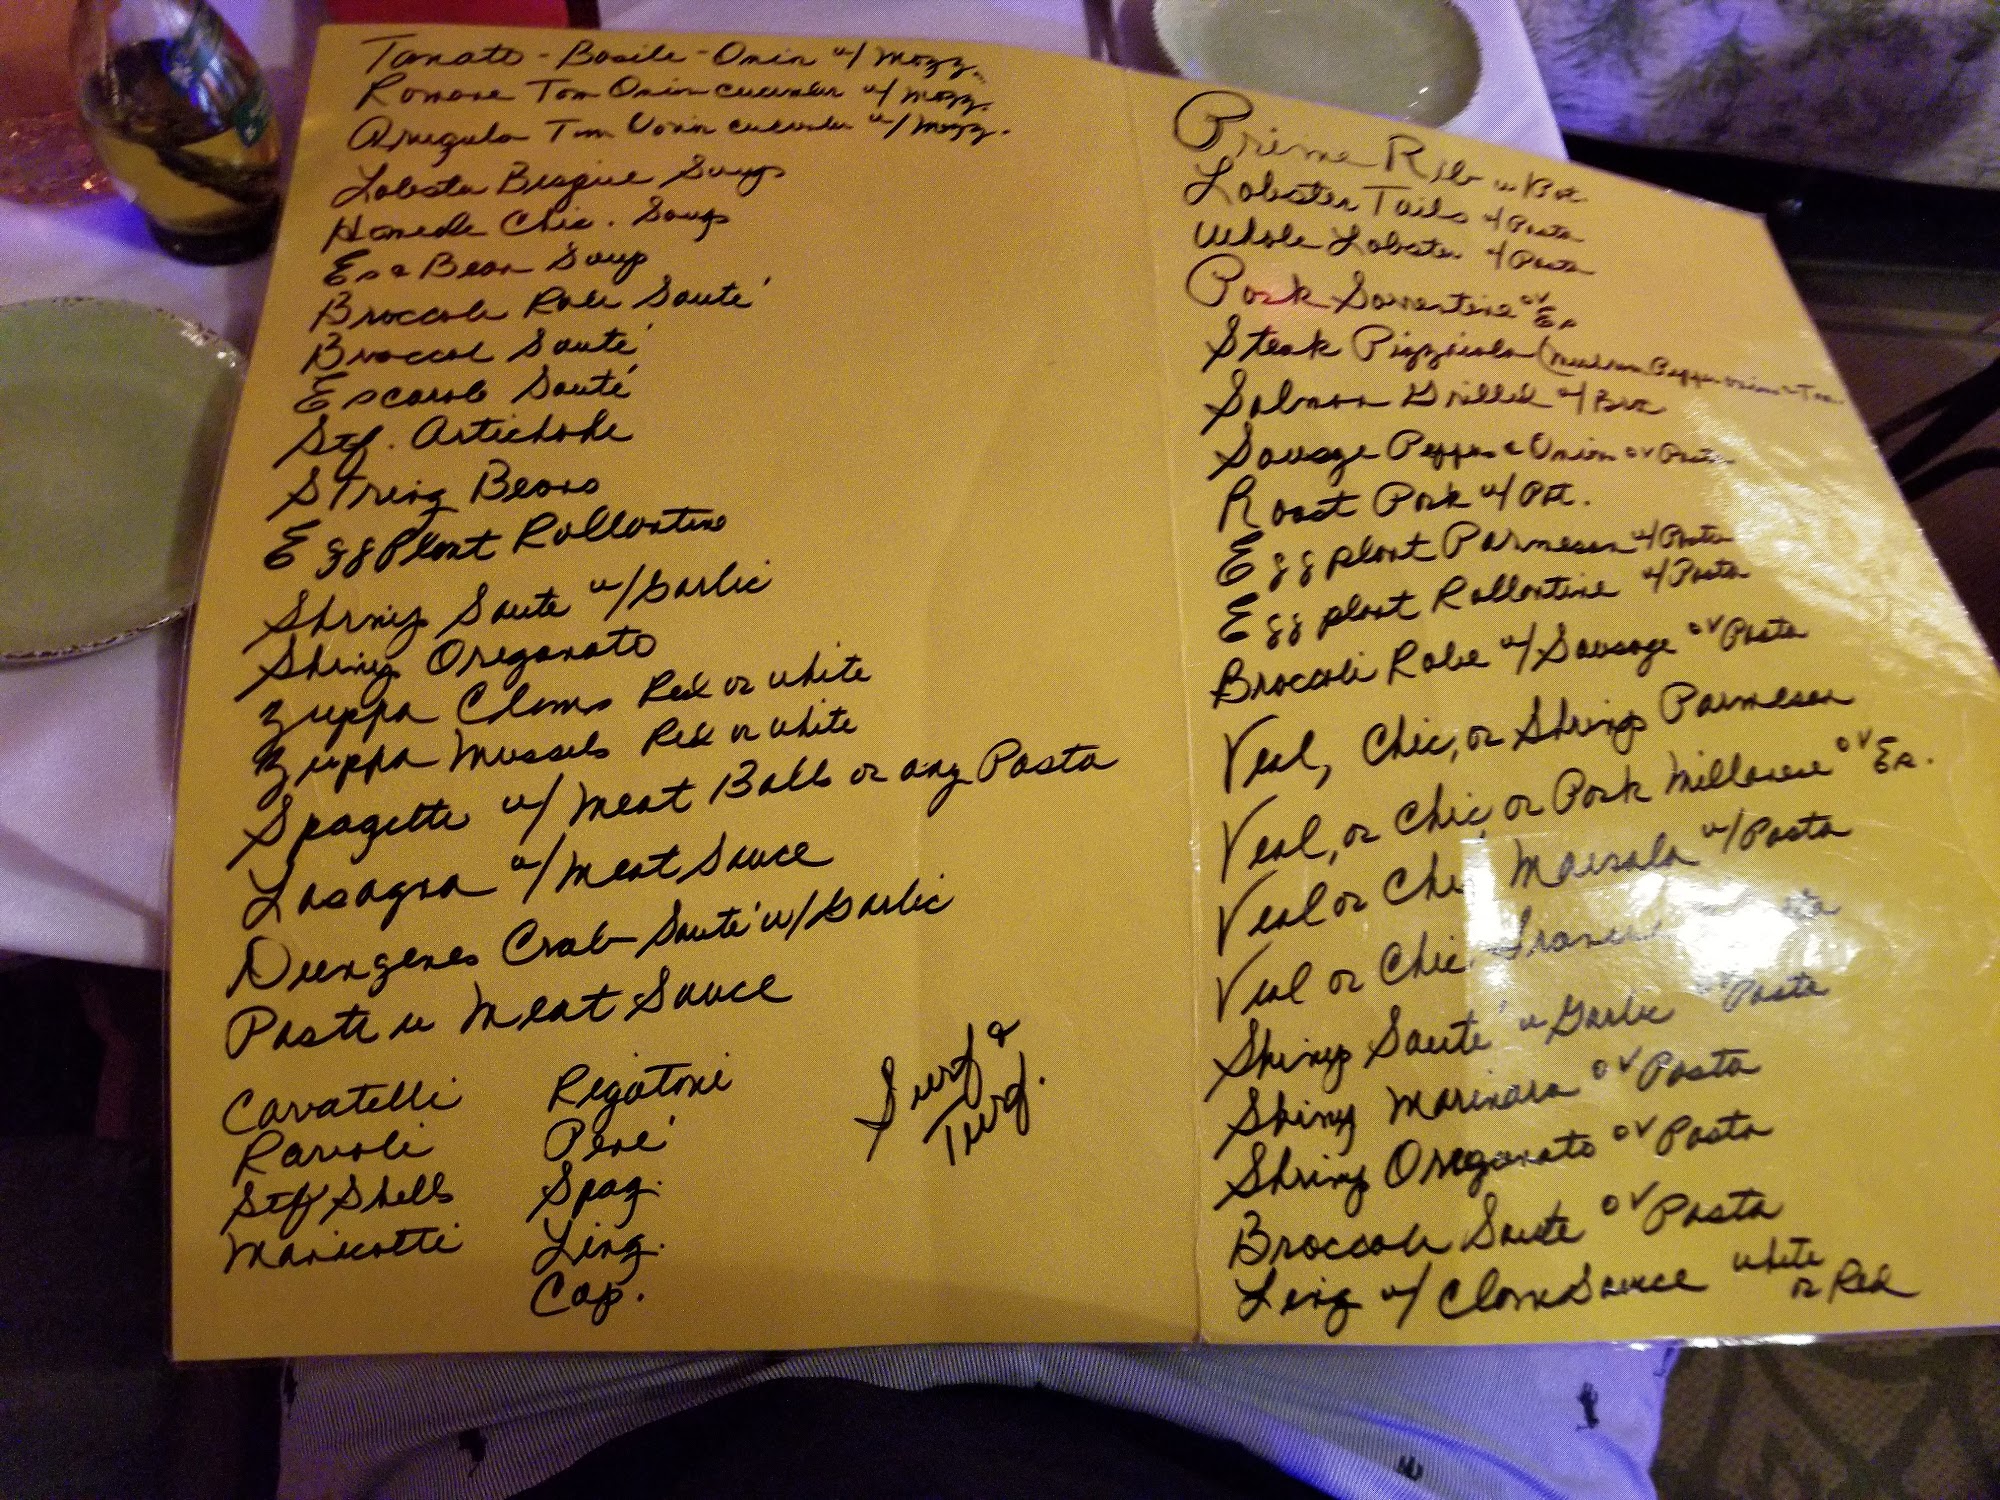 Tomato - Basile - Onin w/ Mozz.
Romane Tom Onin cucumber w/ Mozz.
Arugula Tom Onin cucumber w/ Mozz.
Lobsta Bisque Soup
Homede Chic. Soup
Es & Bean Soup
Broccoli Rabe Sauté
Broccol Sauté
Escarole Sauté
Stf. Artichoke
String Beans
Egg Plant Rollontine
Shrimp Saute w/ Garlic
Shrimp Oreganato
Zuppa Clams Red or White
Zuppa Mussels Red or White
Spagette w/ Meat Balls or any Pasta
Lasagna w/ Meat Sauce
Dungenes Crab Sauté w/ Garlic
Paste w Meat Sauce
Cavatelli Rigatoni
Ravioli Pené
Stf Shells Spag.
Manicotti Ling.
Cap.
Surf &
Turf.
Prime Rib w Pot
Lobster Tails w/ Pasta
Whole Lobster w/ Pasta
Pork Sorrentine ov Es
Steak Pizzaiola (Mushrom Pepper onion & Tom
Salmon Grilled w/ Broc
Sausage Peppers & Onion ov Pasta
Roast Pork w/ Pot.
Egg plant Parmesan w/ Pasta
Egg plant Rollontine w/ Pasta
Broccoli Rabe w/ Sausage ov Pasta
Veal, Chic, or Shrimp Parmesan
Veal, or Chic, or Pork Millanese ov Es.
Veal or Chic Marsala w/ Pasta
Veal or Chic
Shrimp Sauté w Garlic ov Pasta
Shrimp Marinara ov Pasta
Shrimp Oreganato ov Pasta
Broccoli Saute ov Pasta
Ling w/ Clam Sauce white
or Red